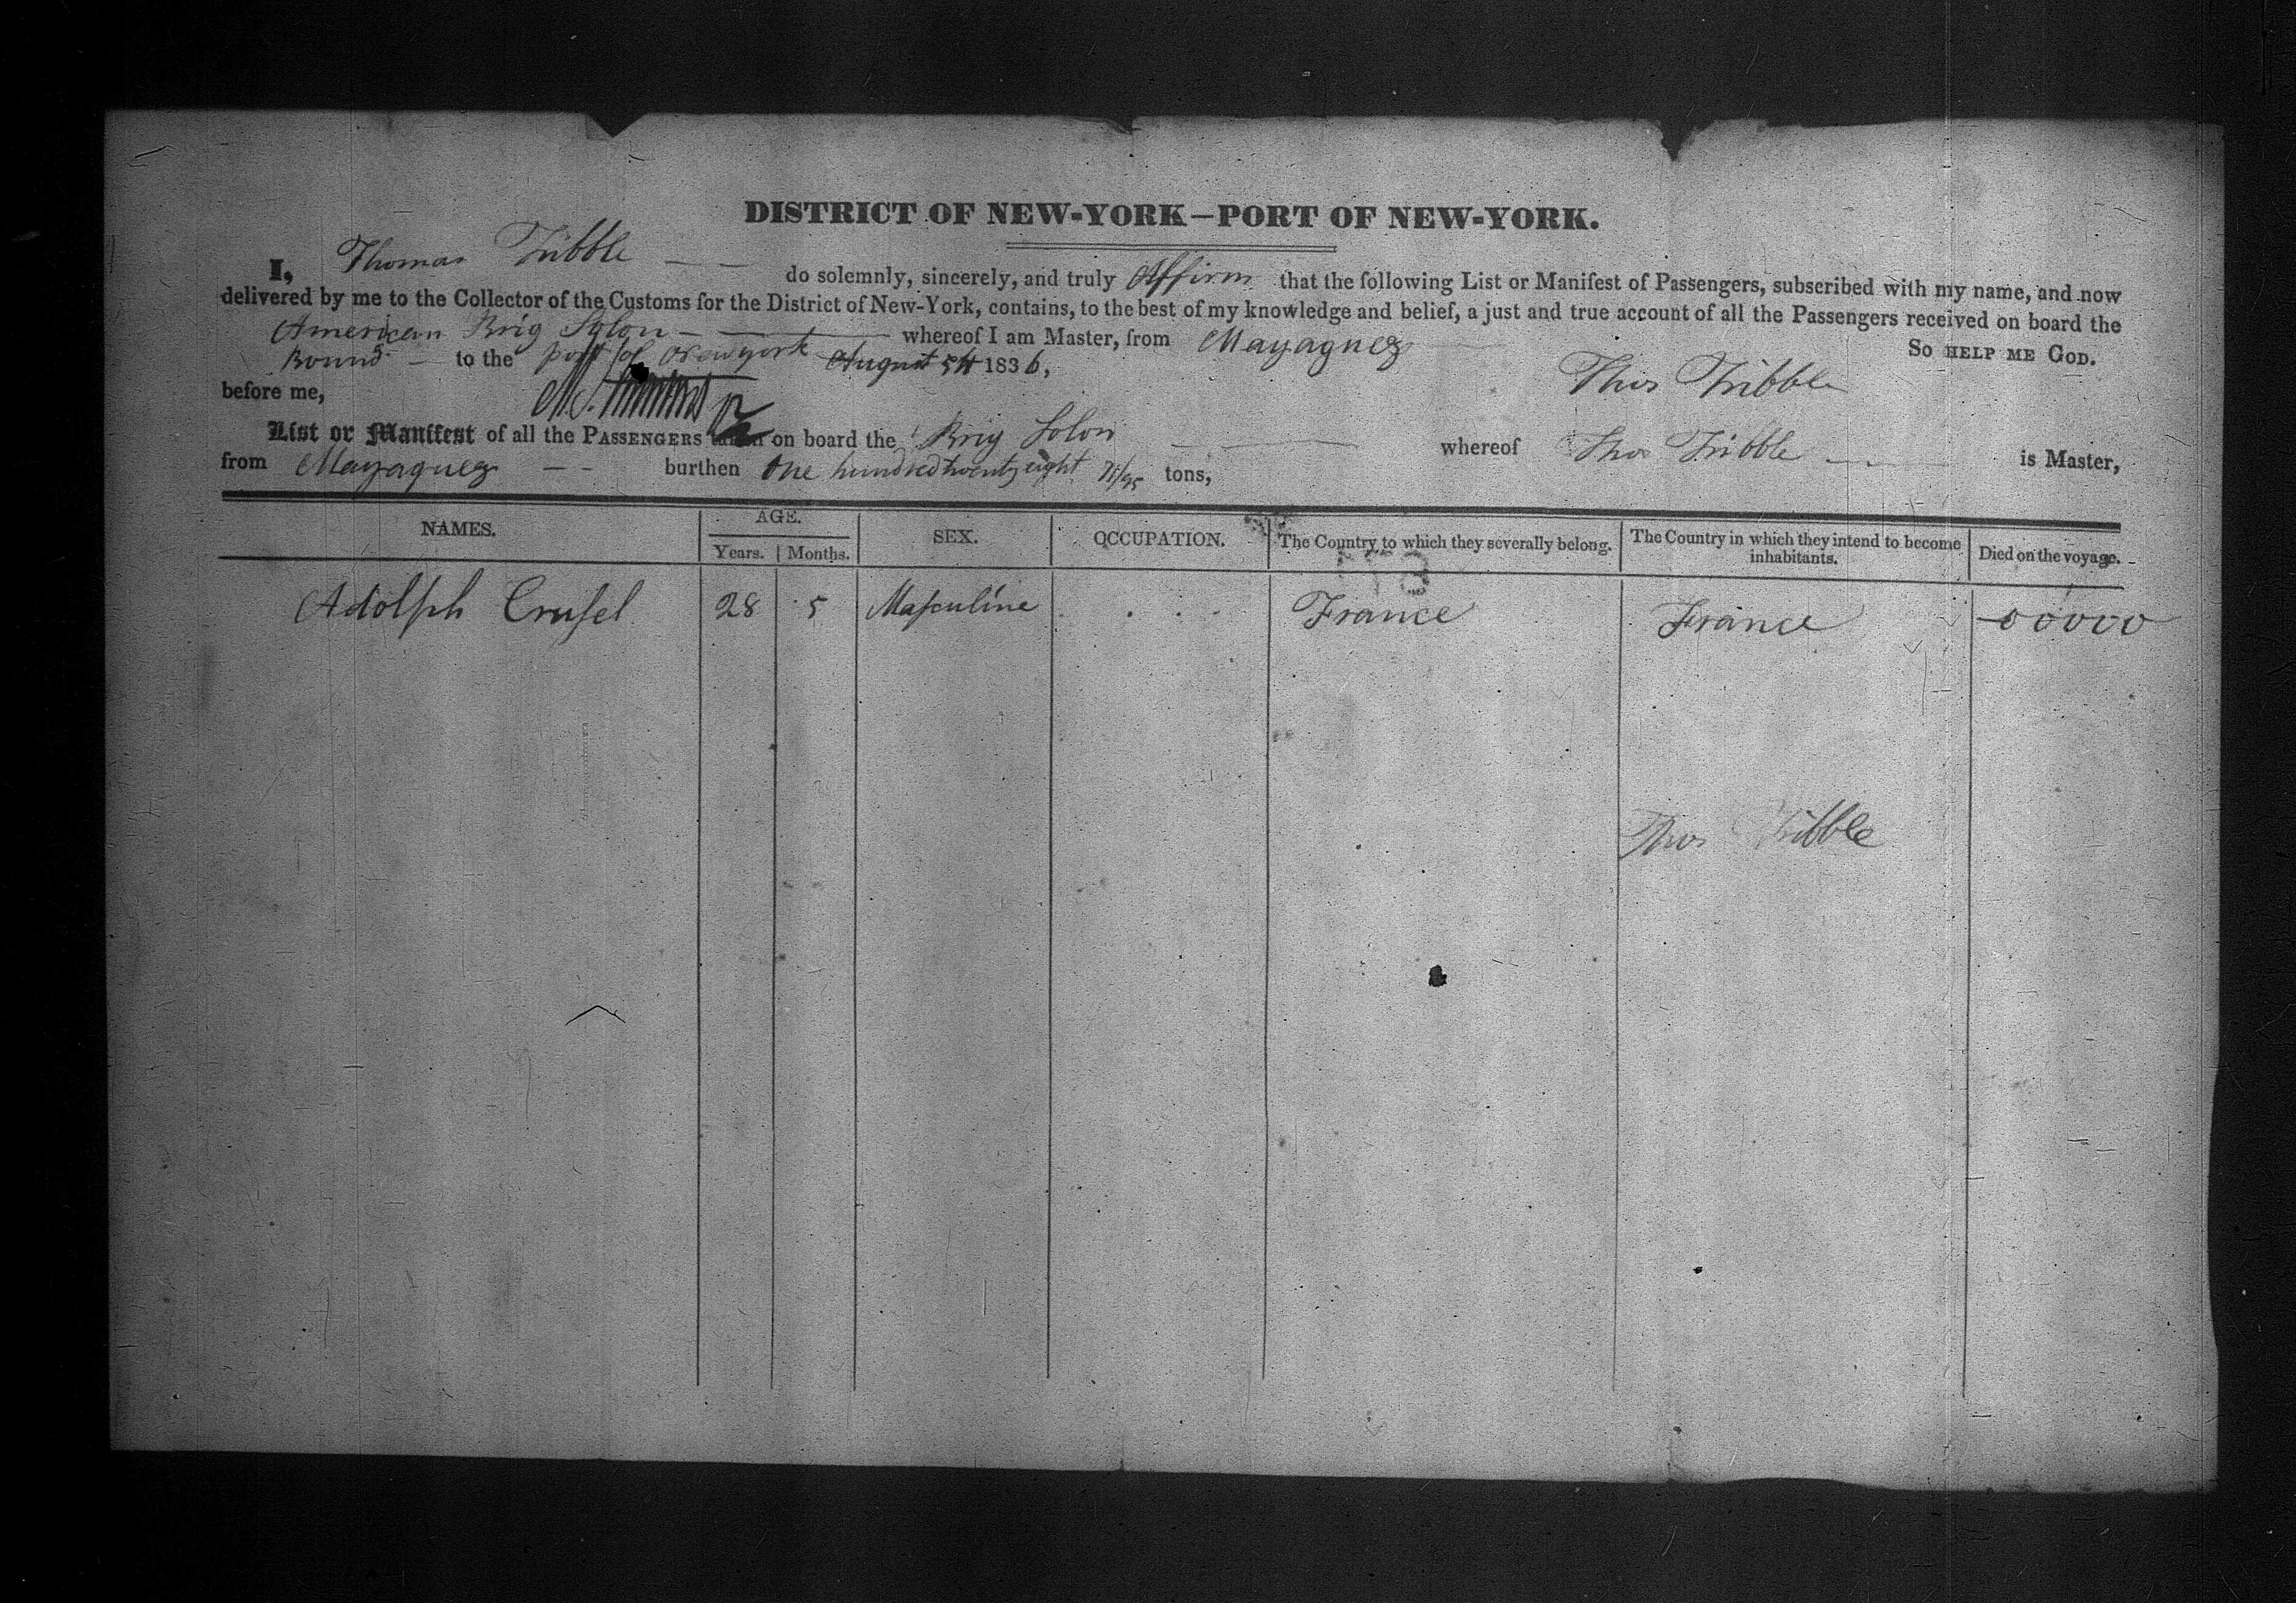 DISTRICT OF NEW-YORK—PORT OF NEW-YORK.
I, Thomas Tribble do solemnly, sincerely, and truly Affirm that the following List or Manifest of Passengers, subscribed with my name, and now
delivered by me to the Collector of the Customs for the District of New-York, contains, to the best of my knowledge and belief, a just and true account of all the Passengers received on board the
American Brig Solon whereof I am Master, from Mayaguez
Bound to the port of Newyork August 5th 1836, So HELP ME GOD.
before me, Thos Tribble
List or Manifest of all the PASSENGERS taken on board the Brig Solon whereof Thos Tribble is Master,
from Mayaguez burthen One hundred twenty eight 71/95 tons,
NAMES. AGE. SEX. OCCUPATION. The Country to which they severally belong. The Country in which they intend to become inhabitants. Died on the voyage.
Years. Months.
Adolph Crusel 28 5 Masculine France France 00000
Thos Tribble